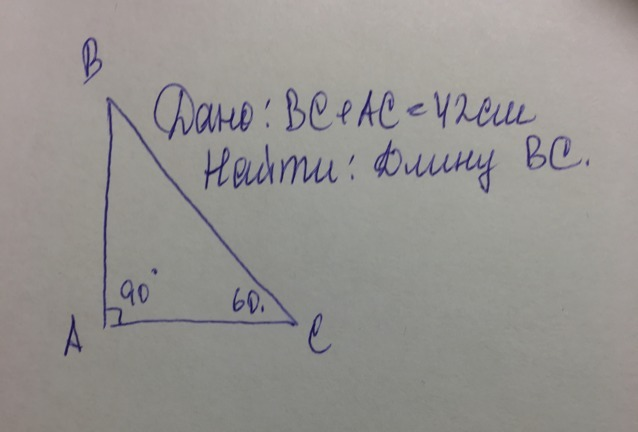 B
Дано: BC+AC=42см
Найти: Длину BC.
90°
60.
A
C